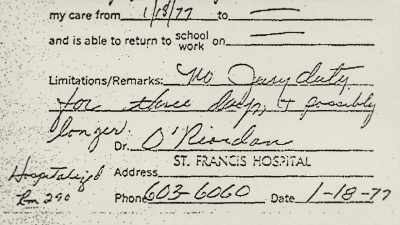 my care from 1/18/77 to
and is able to return to school
work on
Limitations/Remarks: No Jury duty
for three days, & possibly
longer.
Dr. O'Riordan
ST. FRANCIS HOSPITAL
Hospitalized Address
Rm 290 Phone 603-6060 Date 1-18-77